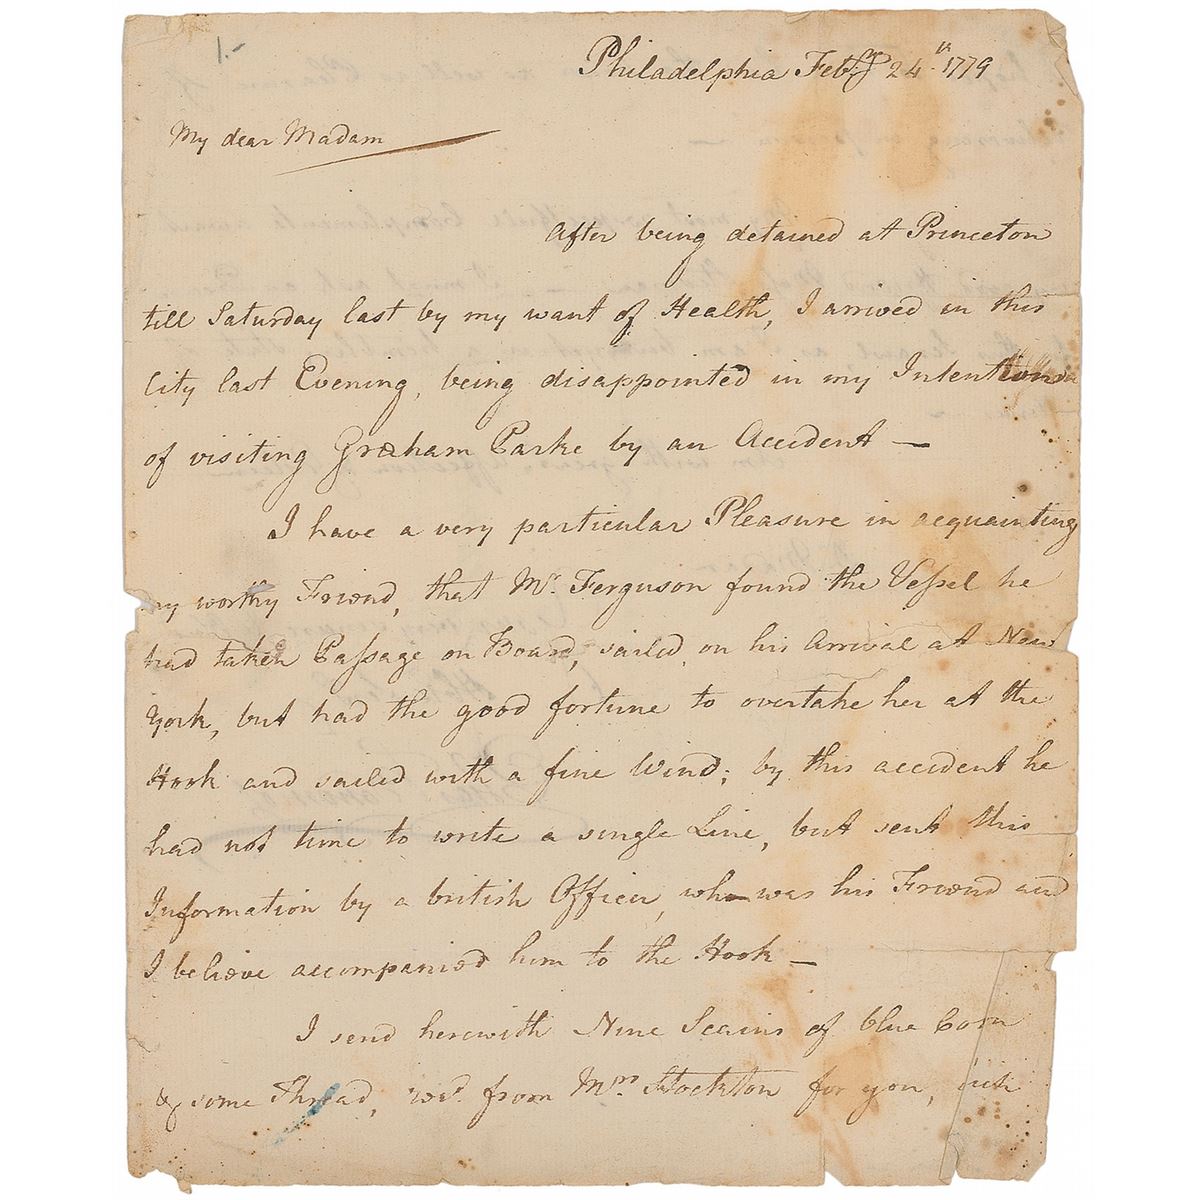 1.-
Philadelphia Feb.ry 24th. 1779
My dear Madam
After being detained at Princeton
till Saturday last by my want of Health, I arrived in this
City last Evening, being disappointed in my Intentions
of visiting Græham Parke by an Accident —
I have a very particular Pleasure in acquainting
my worthy Friend, that Mr. Ferguson found the Vessel he
had taken Passage on Board, sailed, on his Arrival at New
York, but had the good fortune to overtake her at the
Hook and sailed with a fine Wind; by this accident he
had not time to write a single Line, but sent this
Information by a british Officer, who was his Friend and
I believe accompanied him to the Hook —
I send herewith Nine Scains of blue Corn
& some Thread, from Mrs Stockton for you,